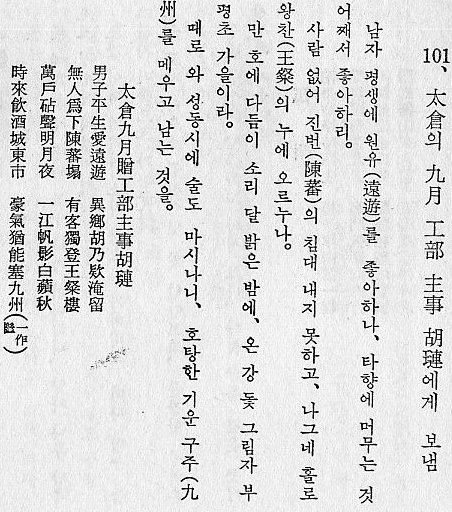 101、太倉의 九月 工部 主事 胡璉에게 보냄
남자 평생에 원유(遠遊)를 좋아하나、타향에 머무는 것
어째서 좋아하리。
사람 없어 진번(陳蕃)의 침대 내지 못하고、나그네 홀로
왕찬(王粲)의 누에 오르누나。
만 호에 다듬이 소리 달 밝은 밤에、온 강 돛 그림자 부
평초 가을이라。
때로 와 성동시에 술도 마시나니、호탕한 기운 구주(九
州)를 메우고 남는 것을。
太倉九月贈工部主事胡璉
男子平生愛遠遊 異鄉胡乃欵淹留
無人爲下陳蕃榻 有客獨登王粲樓
萬戶砧聲明月夜 一江帆影白蘋秋
時來飮酒城東市 豪氣猶能塞九州(一作)